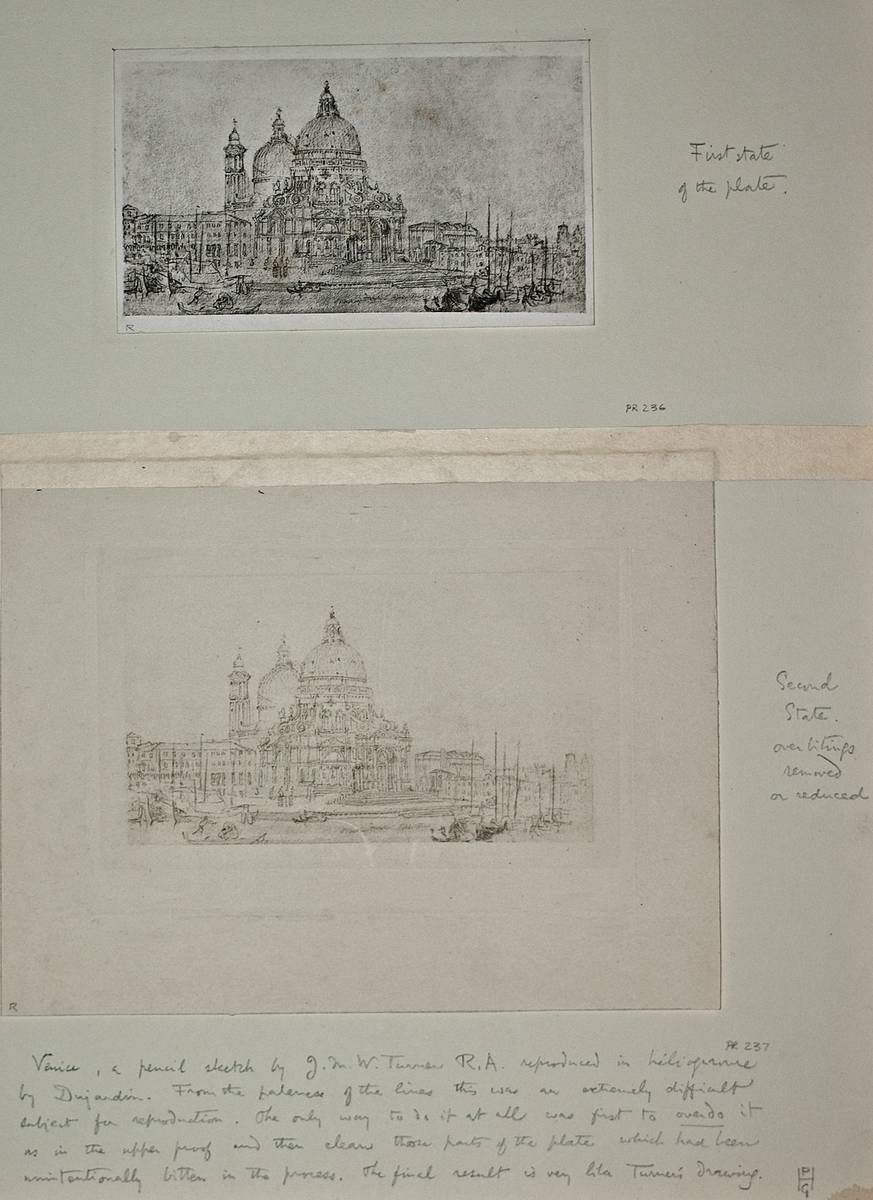 First state
of the plate.
R
PR 236
Second
State.
overbitings
removed
or reduced
R
PR 237
Venice, a pencil sketch by J.M.W. Turner R.A. reproduced in héliogravure
by Dujardin. From the paleness of the lines this was an extremely difficult
subject for reproduction. The only way to do it at all was first to overdo it
as in the upper proof and then clean those parts of the plate which had been
unintentionally bitten in the process. The final result is very like Turner's drawing.
PGH